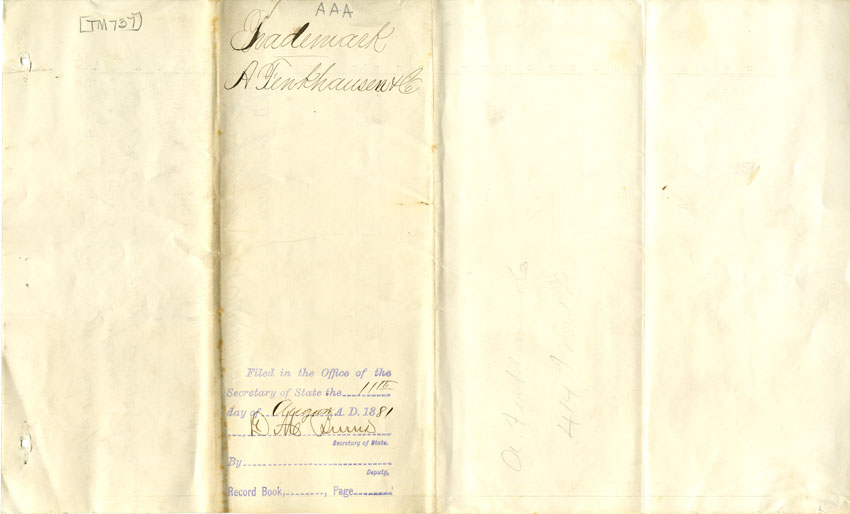 [TM 737]
AAA
Trademark
A Fenkhausen & Co
Filed in the Office of the
Secretary of State the 11th
day of August A. D. 1881
D M Burns
Secretary of State.
By
Deputy.
Record Book, , Page
414 Front